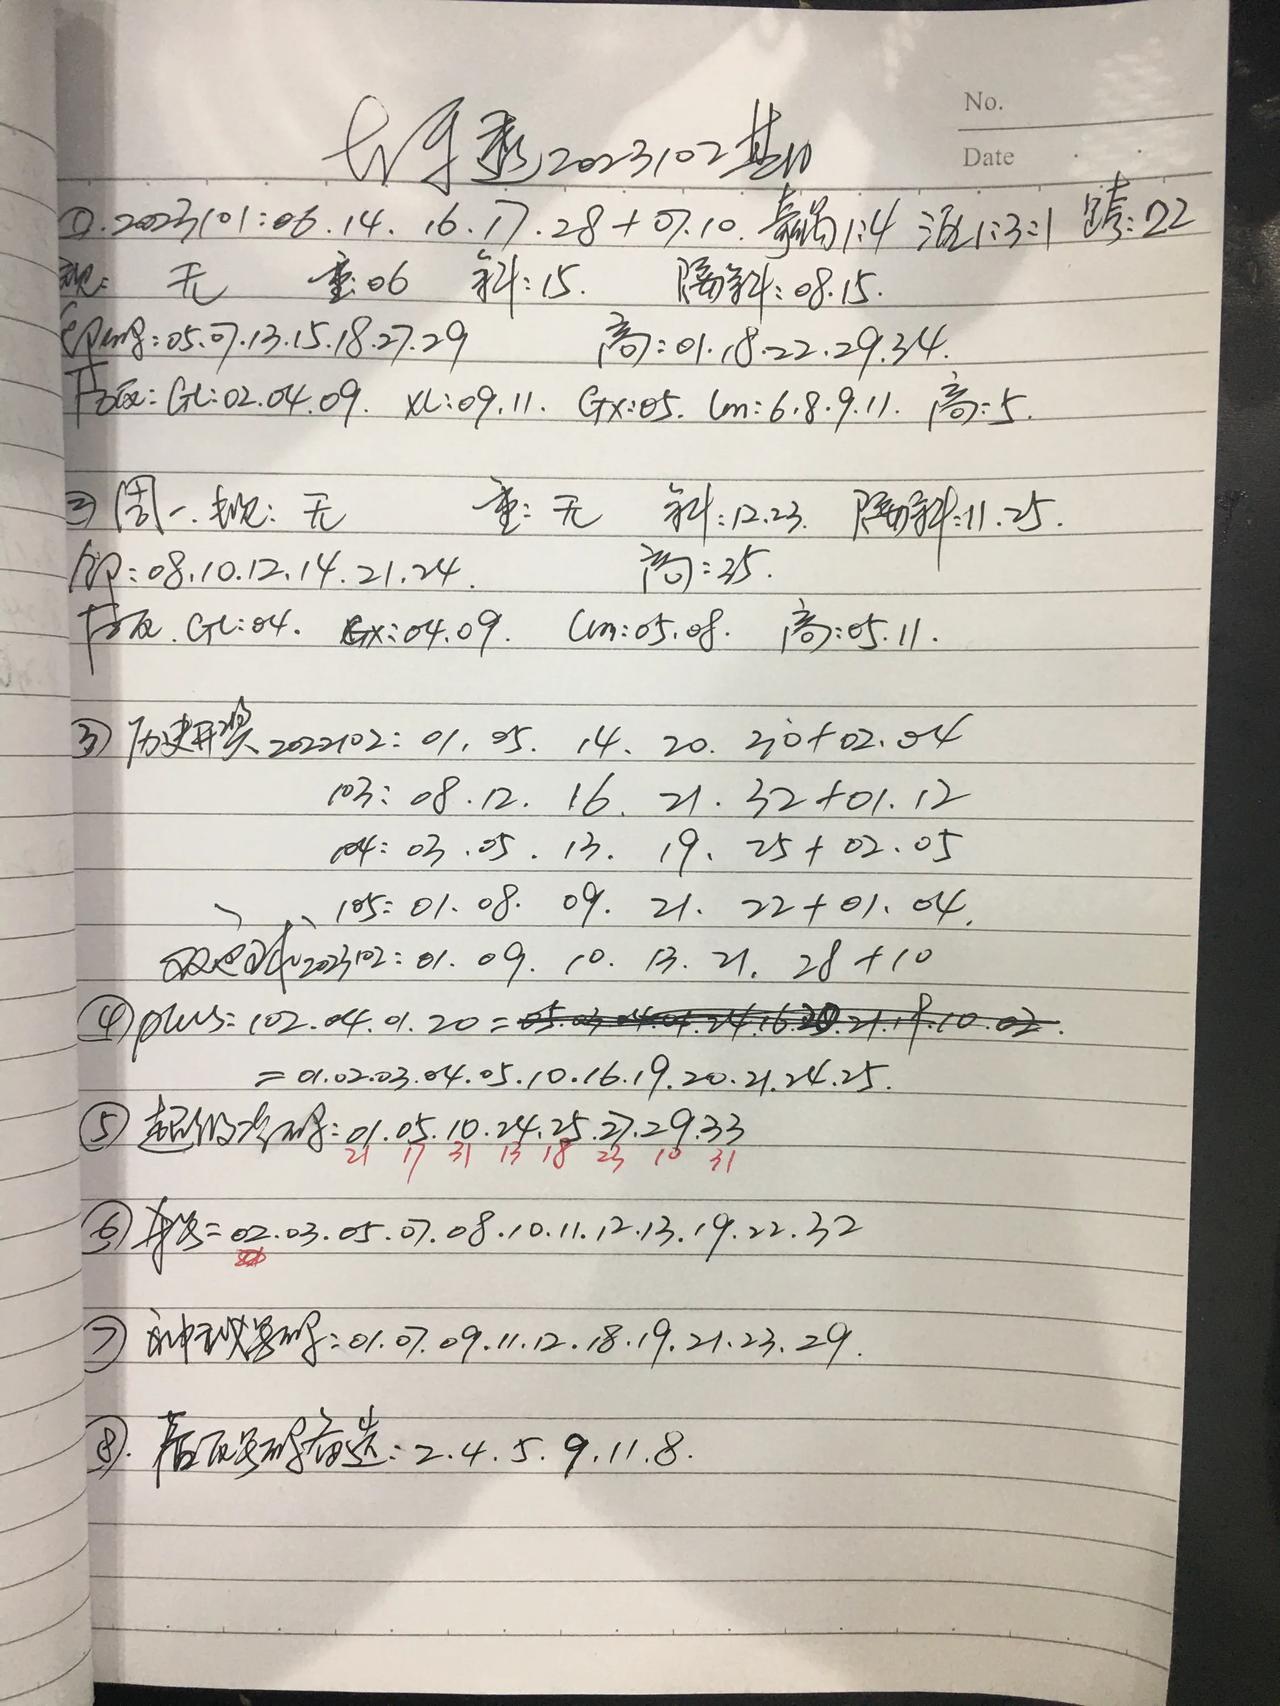 No.
Date
大乐透2023102基础
①.2023101:06.14.16.17.28+07.10. 奇偶1:4 1:3:1 跨:22
规: 无 重:06 斜:15. 隔斜:08.15.
邻码:05.07.13.15.18.27.29 高:01.18.22.29.34.
后区:GL:02.04.09. XL:09.11. GX:05. Lm:6.8.9.11. 高:5.
② 周一.规: 无 重: 无 斜:12.23. 隔斜:11.25.
邻:08.10.12.14.21.24. 高:35.
后区.GL:04. GX:04.09. Lm:05.08. 高:05.11.
③ 历史开奖2022102: 01.05.14.20.30+02.04
103: 08.12.16.21.32+01.12
04: 03.05.13.19.25+02.05
105: 01.08.09.21.22+01.04.
双色球2023102: 01.09.10.13.21.28+10
④ plus=102.04.01.20=
=01.02.03.04.05.10.16.19.20.21.24.25.
⑤ 超级冷码:01.05.10.24.25.27.29.33
21 17 31 13 18 23 10 31
⑥ =02.03.05.07.08.10.11.12.13.19.22.32
⑦ 神秘号码:01.07.09.11.12.18.19.21.23.29.
⑧. 后区号码备选:2.4.5.9.11.8.